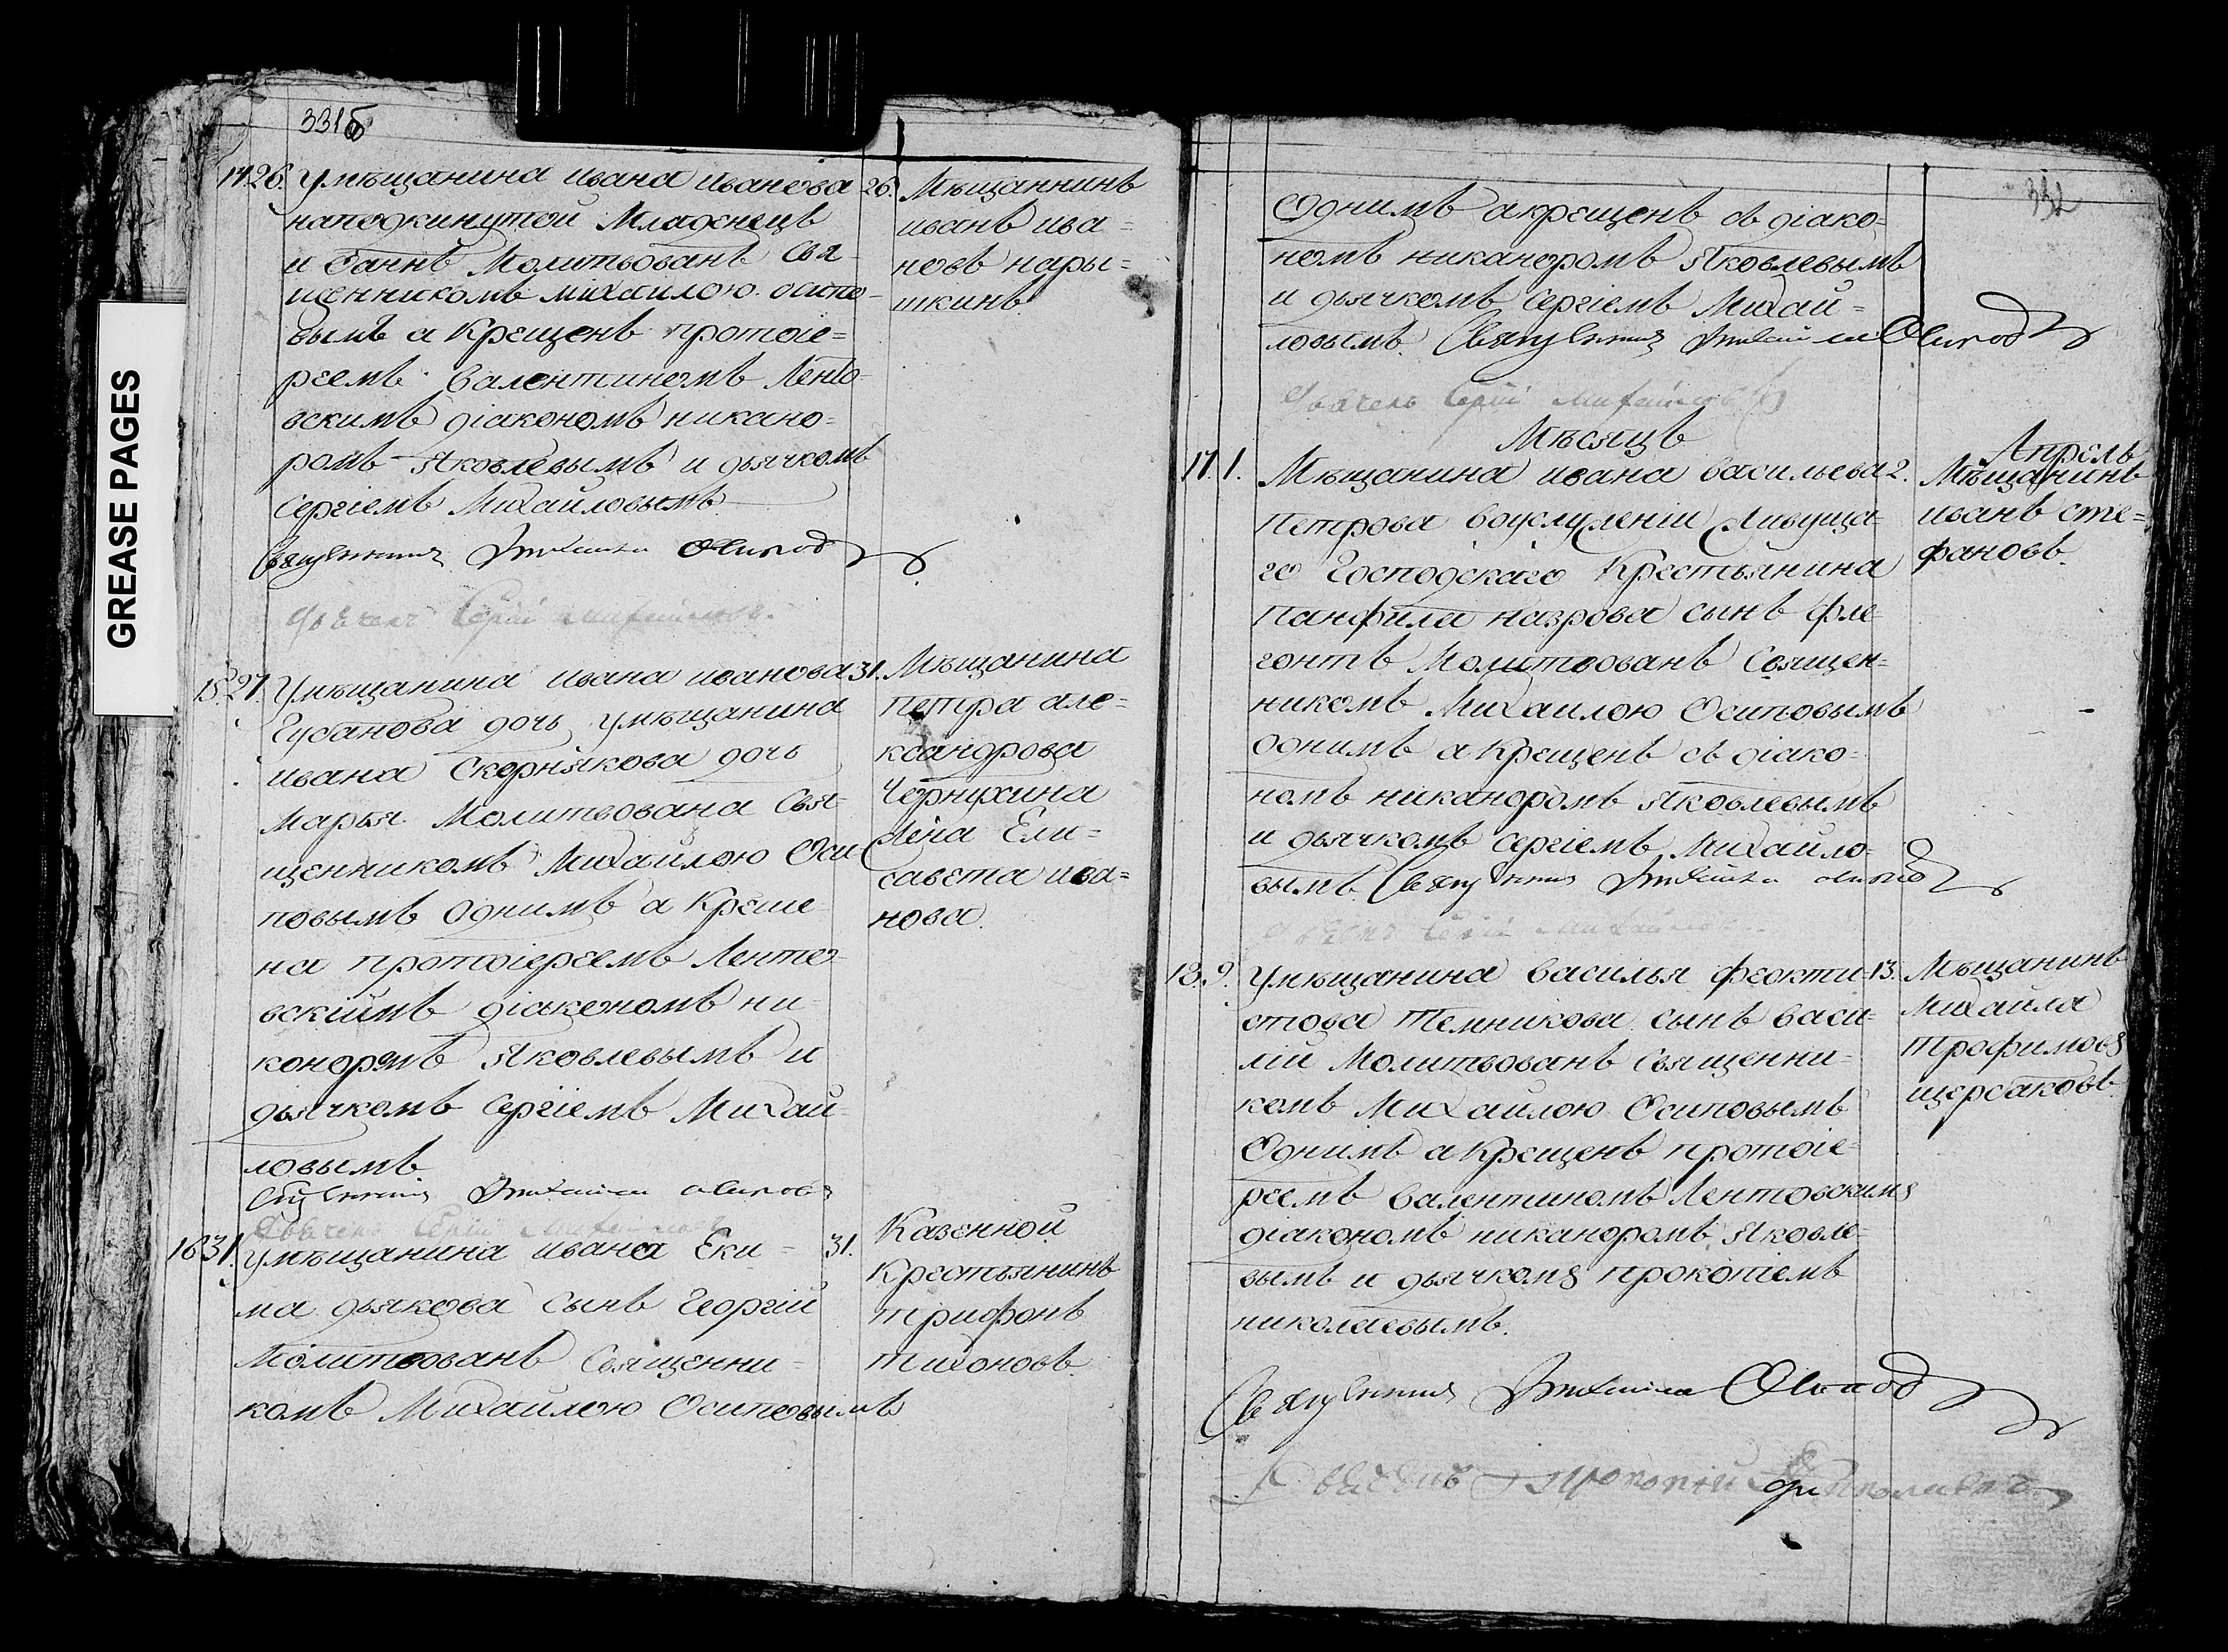 GREASE PAGES
331б
14. 26. Умѣщанина ивана иванова
наподкинутой Младенецъ
и Молитвованъ Свя-
щенникомъ михаилою осипо-
вымъ а Крещенъ протоіе=
реемъ валентиномъ Ленто-
вскимъ діакономъ никано=
ромъ Яковлевымъ и дьячкомъ
Сергіемъ Михайловымъ
Священникъ Михаила Осиповъ
дьячекъ Сергій михайловъ
26. Мѣщаннинъ
иванъ ива=
новъ нары=
шкинъ.
15. 27. Умѣщанина ивана иванова
Губанова дочь умѣщанина
ивана Скорнякова дочь
марья Молитвована Свя=
щенникомъ Михайлою Оси-
повымъ Однимъ а Креще-
на протоіереемъ Ленто-
вскіимъ діакономъ ни-
коноромъ Яковлевымъ и
дьячкомъ Сергіемъ Михай-
ловымъ
Священникъ Михаила осиповъ
дьячекъ Сергій Михайловъ
31. Мѣщанина
петра але=
ксандрова
Чернухина
жена Ели=
савета ива=
нова.
16. 31. Умѣщанина ивана Еки=
ма дьякова сынъ Георгій
Молитвованъ Священни=
комъ Михаилою Осиповымъ
31. Казенной
Крестьянинъ
трифонъ
тихоновъ.
332
Однимъ а крещенъ съ діако=
номъ никаноромъ Яковлевымъ
и дьячкомъ Сергіемъ Михай=
ловымъ. Священникъ Михаила Осиповъ
дьячекъ Сергій михайловъ
Мѣсяцъ Апрель
17. 1. Мѣщанина ивана васильева
Петрова воуслуженіи живуща-
го Господскаго Крестьянина
Панфила назрова сынъ фле
гонтъ Молитвованъ Священ=
никомъ Михаилою Осиповымъ
Однимъ а Крещенъ съ діако=
номъ никаноромъ Яковлевымъ
и дьячкомъ Сергіемъ Михайло-
вымъ. Священникъ Михаила осиповъ
дьячекъ Сергій Михайловъ
2. Мѣщанинъ
иванъ сте=
фановъ.
18. 9. Умѣщанина василья феокти-
стова Темникова сынъ васи-
лій Молитвованъ Священни-
комъ Михаилою Осиповымъ
Однимъ а Крещенъ протоіе-
реемъ валентиномъ Лентовскимъ
діакономъ никаноромъ Яковле-
вымъ и дьячкомъ прокопіемъ
николаевымъ.
Священникъ Михаила Осиповъ
Дьячекъ Прокопій Николаевъ
13. Мѣщанинъ
Михайла
Трофимовъ
щербаковъ.